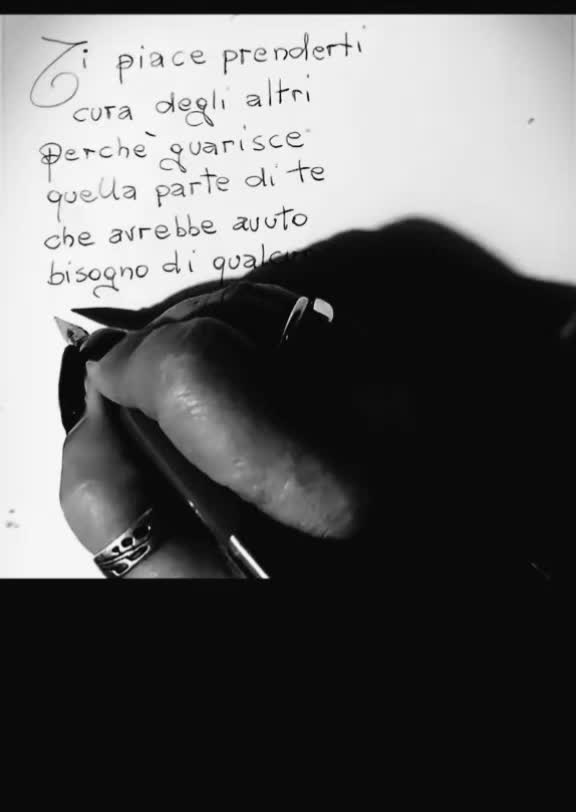 Ti piace prenderti
cura degli altri
perchè guarisce
quella parte di te
che avrebbe avuto
bisogno di